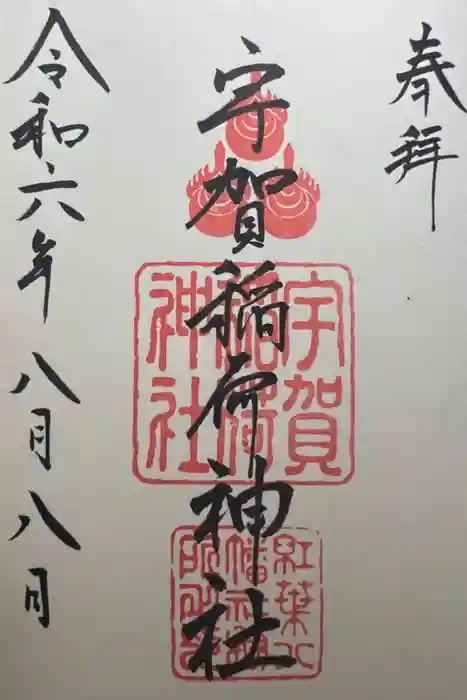 奉拝
宇賀稲荷神社
宇賀
稲荷
神社
紅葉八
幡社
令和六年八月八日